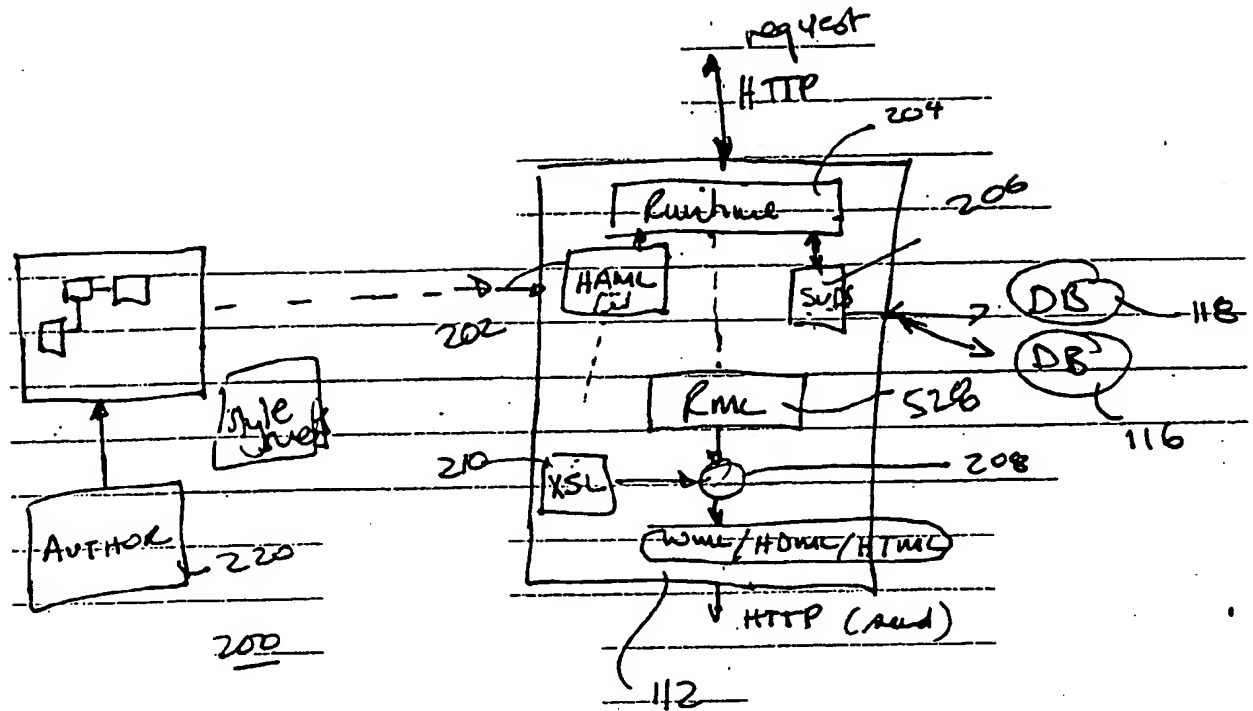 request
HTTP
204
Runtime
206
HAML
SUDS
DB
118
202
DB
Style
Sheet
RML
528
116
210
XSL
208
AUTHOR
220
WML/HDML/HTML
HTTP (send)
200
112